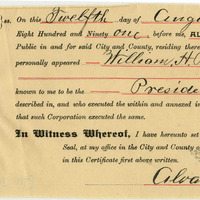 ss. On this Twelfth day of
Eight Hundred and Ninety one before me, AL
Public in and for said City and County, residing there
personally appeared William H.
known to me to be the Preside
described in, and who executed the within and annexed i
that such Corporation executed the same.
In Witness Whereof, I have hereunto set
Seal, at my office in the City and County o
in this Certificate first above written.